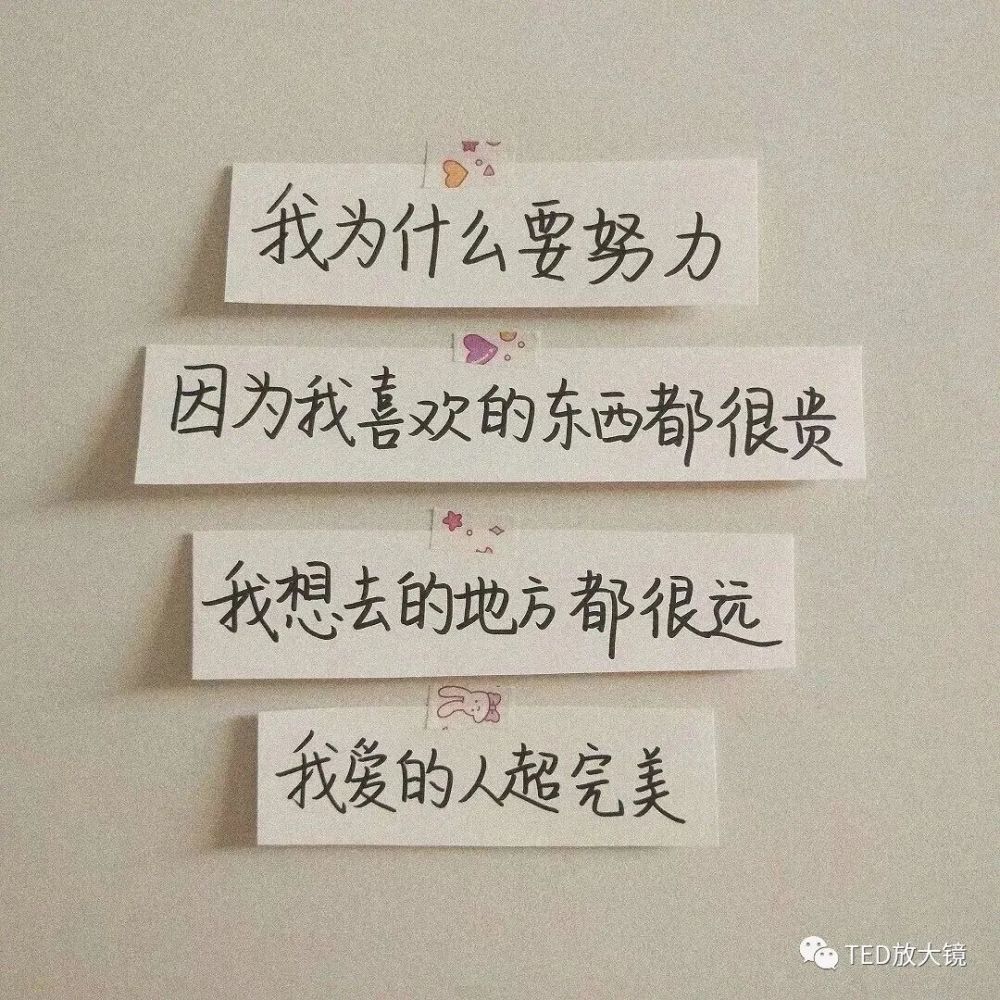 我为什么要努力
因为我喜欢的东西都很贵
我想去的地方都很远
我爱的人超完美
TED放大镜